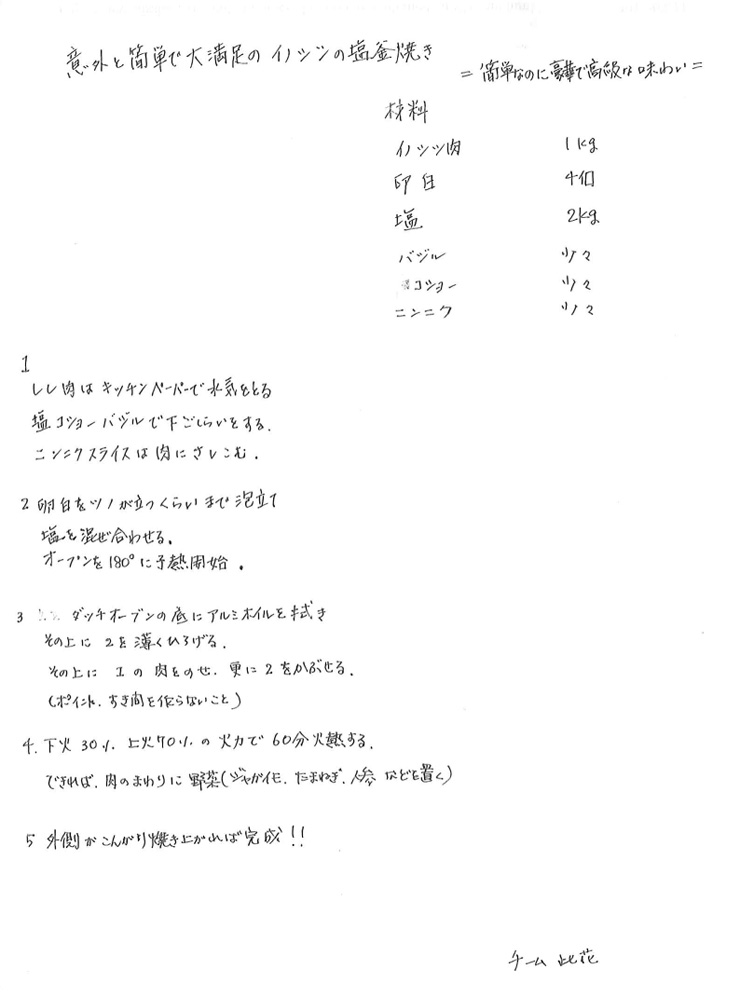 意外と簡単で大満足の イノシシの塩釜焼き
= 簡単なのに豪華で高級な味わい =
材料
イノシシ肉 1kg
卵白 4個
塩 2kg
バジル 少々
コショー 少々
ニンニク 少々
1
シシ肉は キッチンペーパーで 水気をとる
塩コショー バジルで下ごしらいをする.
ニンニクスライスは肉にさしこむ.
2 卵白をツノが立つくらいまで泡立て
塩を混ぜ合わせる.
オーブンを180°に予熱開始.
3 ダッチオーブンの底にアルミホイルを拭き
その上に 2を薄くひろげる.
その上に 1の肉をのせ. 更に2をかぶせる.
(ポイント. すき間を作らないこと)
4. 下火30%. 上火70%の火力で60分火熱する.
できれば. 肉のまわりに野菜(ジャガイモ. たまねぎ. 人参 などを置く)
5 外側がこんがり焼き上がれば完成!!
チーム 此花